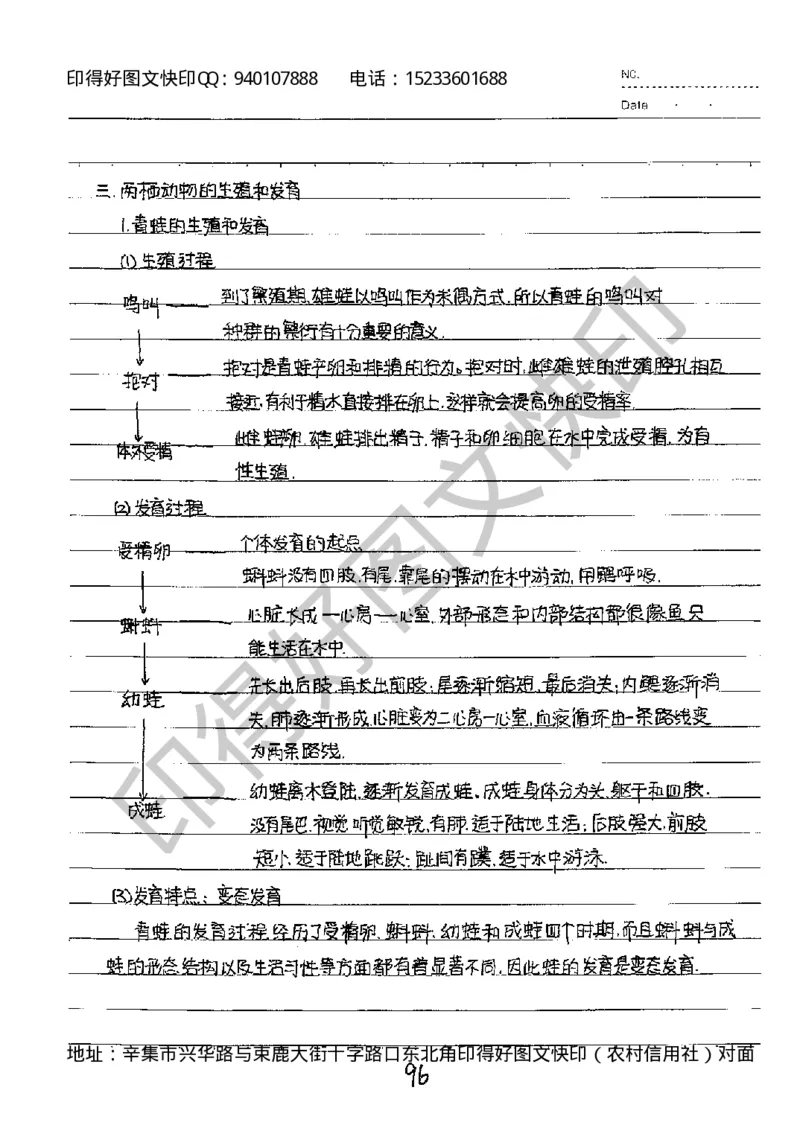 印得好图文快印QQ：940107888 电话：15233601688
NO.
Date
三.两栖动物的生殖和发育
1.青蛙的生殖和发育
(1)生殖过程
鸣叫 到了繁殖期,雄蛙以鸣叫作为求偶方式,所以青蛙的鸣叫对
种群的繁衍有十分重要的意义.
抱对 抱对是青蛙产卵和排精的行为。抱对时,雌雄蛙的泄殖腔孔相互
接近,有利于精水直接排在卵上,这样就会提高卵的受精率.
体外受精 雌蛙卵.雄蛙排出精子.精子和卵细胞在水中完成受精,为有
性生殖.
(2)发育过程
受精卵 个体发育的起点
蝌蚪没有四肢,有尾,靠尾的摆动在水中游动,用鳃呼吸.
蝌蚪 心脏长成一心房一心室,外部形态和内部结构都很像鱼,只
能生活在水中.
幼蛙 先长出后肢,再长出前肢;尾逐渐缩短,最后消失;内鳃逐渐消
失,肺逐渐形成,心脏变为二心房一心室,血液循环由一条路线变
为两条路线.
成蛙 幼蛙离水登陆,逐渐发育成蛙。成蛙身体分为头.躯干和四肢.
没有尾巴.视觉.听觉敏锐,有肺.适于陆地生活;后肢强大.前肢
短小.适于陆地跳跃;趾间有蹼,适于水中游泳.
(3)发育特点:变态发育
青蛙的发育过程经历了受精卵.蝌蚪.幼蛙和成蛙四个时期,而且蝌蚪与成
蛙的形态结构以及生活习性等方面都有着显著不同,因此蛙的发育是变态发育.
地址：辛集市兴华路与束鹿大街十字路口东北角印得好图文快印（农村信用社）对面
96
印得好图文快印